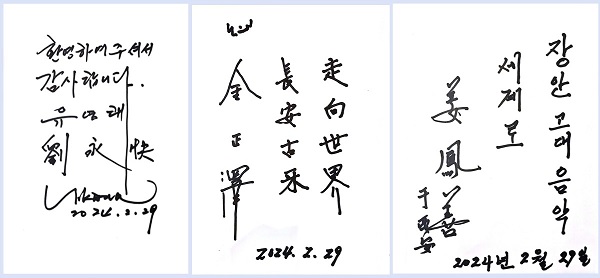 환영하여 주셔서
감사합니다.
유영쾌
劉永快
2024.2.29
走向世界
長安古乐
金正澤
2024.2.29
장안고대음악
세계로
姜鳳善
于西安
2024년 2월 29일